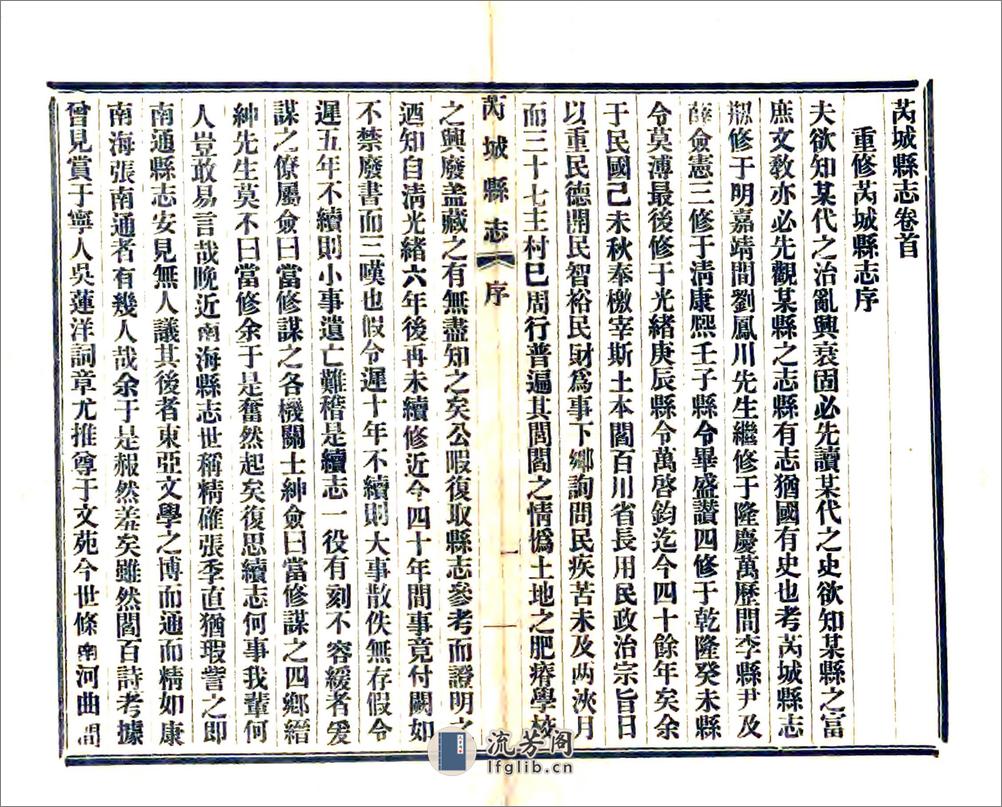 芮城縣志卷首
重修芮城縣志序
夫欲知某代之治亂興衰固必先讀某代之史欲知某縣之富
庶文敎亦必先觀某縣之志縣有志猶國有史也考芮城縣志
剏修于明嘉靖間劉鳳川先生繼修于隆慶萬歷間李縣尹及
薛僉憲三修于淸康熙壬子縣令畢盛讚四修于乾隆癸未縣
令莫溥最後修于光緒庚辰縣令萬啓鈞迄今四十餘年矣余
于民國己未秋奉檄宰斯土本閻百川省長用民政治宗旨日
以重民德開民智裕民財爲事下鄕詢問民疾苦未及两浹月
而三十七主村已周行普遍其閭閻之情僞土地之肥瘠學校
芮城縣志 序 一
之興廢盖藏之有無盡知之矣公暇復取縣志參考而證明之
酒知自淸光緒六年後再未續修近今四十年間事竟付闕如
不禁廢書而三嘆也假令遲十年不續則大事散佚無存假令
遲五年不續則小事遺亡難稽是續志一役有刻不容緩者爰
謀之僚屬僉曰當修謀之各機關士紳僉曰當修謀之四鄕縉
紳先生莫不曰當修余于是奮然起矣復思續志何事我輩何
人豈敢易言哉晚近南海縣志世稱精確張季直猶瑕訾之即
南通縣志安見無人議其後者東亞文學之博而通而精如康
南海張南通者有幾人哉余于是赧然羞矣雖然閻百詩考據
曾見賞于寧人吳蓮洋詞章尤推尊于文苑今世條南河曲間
流芳阁
lfglib.cn